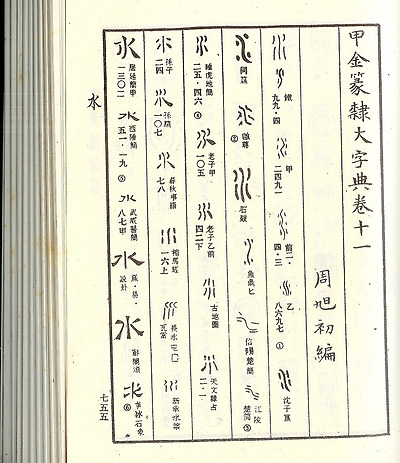 甲金篆隸大字典卷十一
周旭初編
鐵
九九·四
甲
二四九一
前二·
四·三
乙
八六九七 ①
沈子簋
同簋
啟尊
②
石鼓
魚鼎匕
信陽楚簡
江陵
楚簡 ③
睡虎地簡
二五·四六 ④
老子甲
一〇五
老子乙前
四二下
古地圖
天文雜占
二·一
孫子
二四
孫臏
一〇七
春秋事語
七八
相馬經
一六上
長水屯
瓦當
新承水槃
水
居延簡甲
一三〇二
西陲簡
五一·一九 ⑤
武威醫簡
八七甲
熹·易·
說卦
⑥
水
七五五